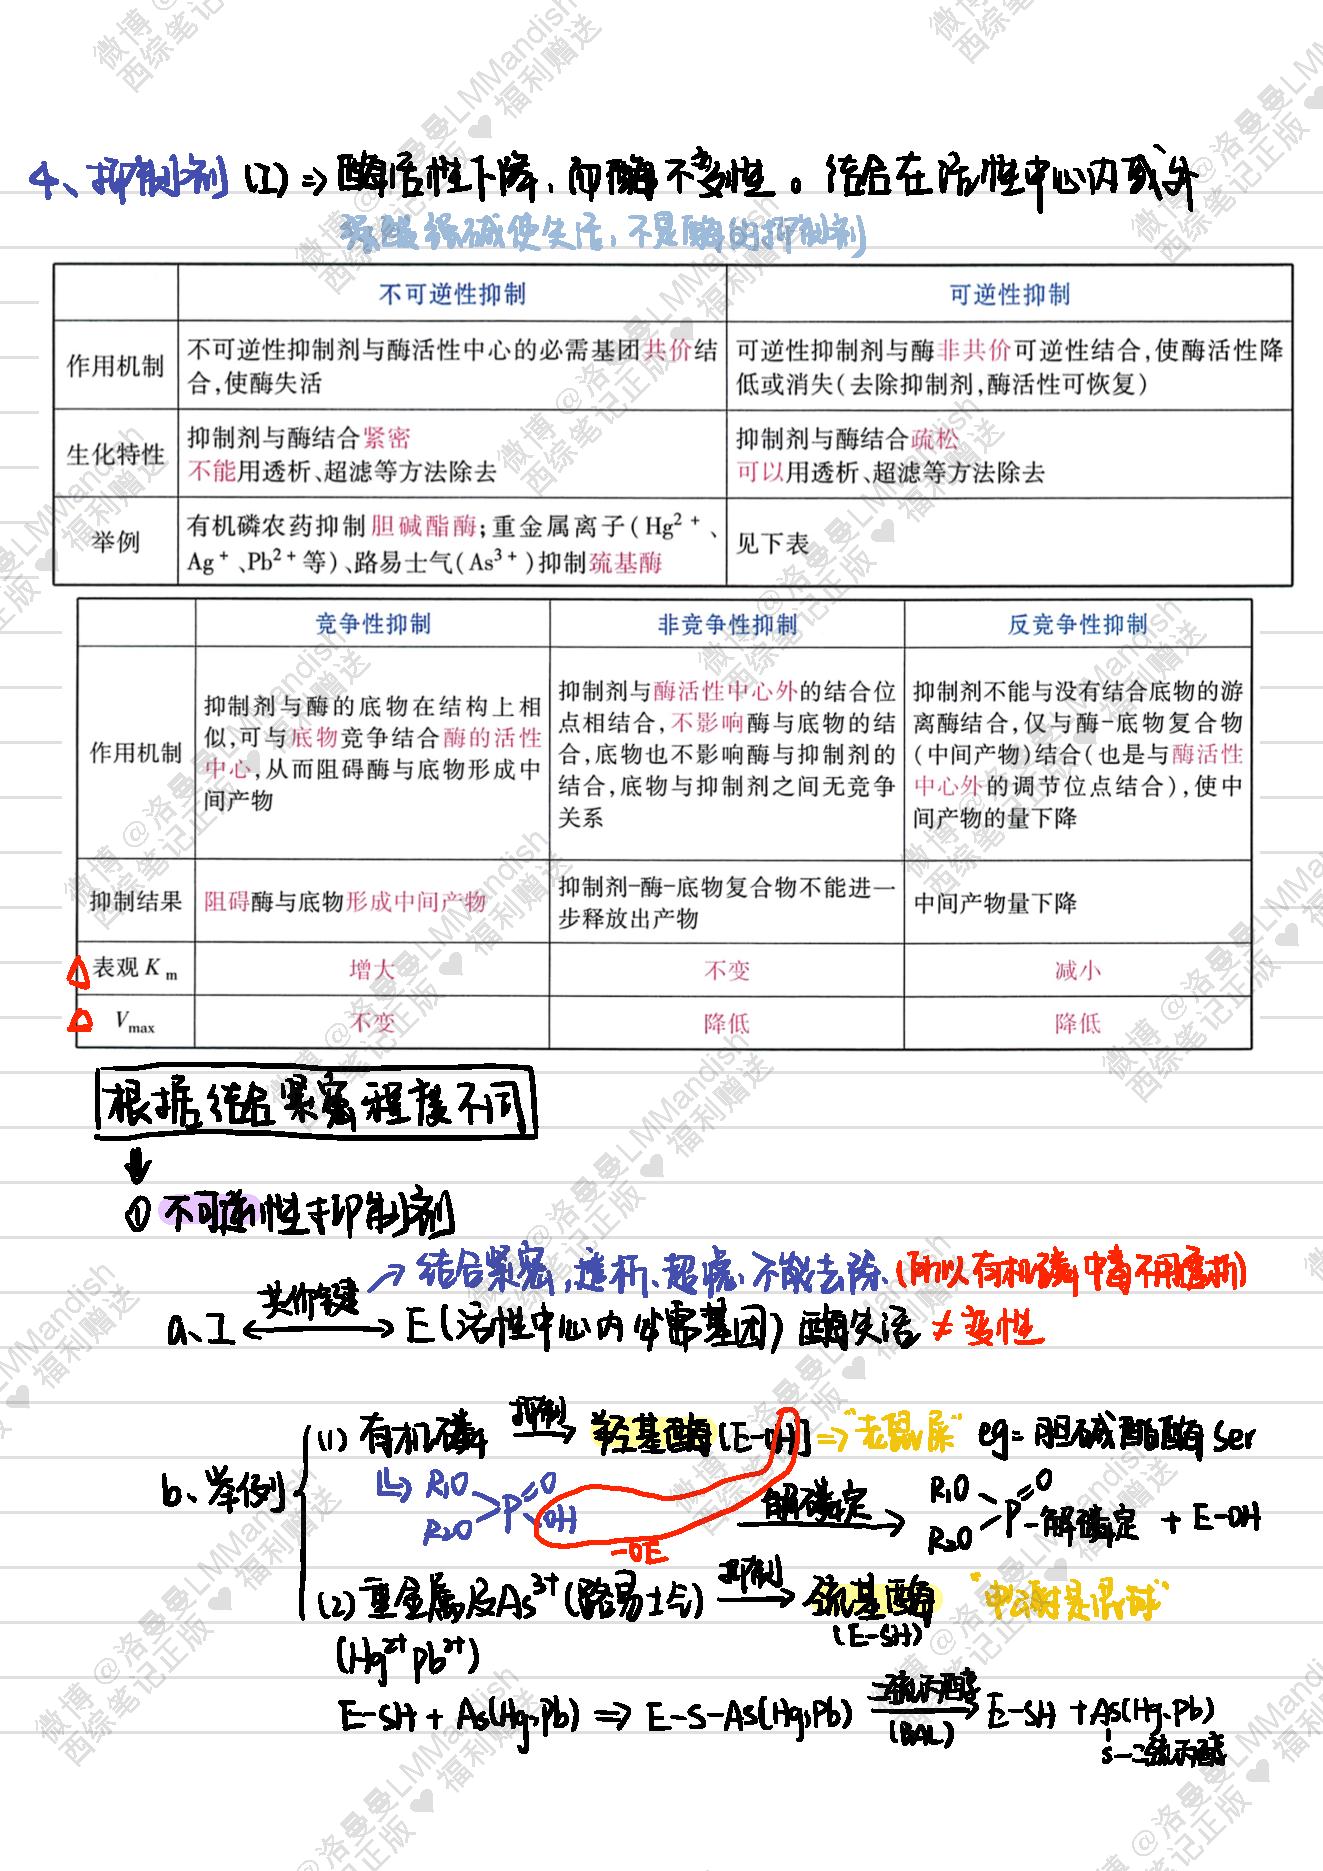 4、抑制剂(I)⇒酶活性下降,而酶不变性。结合在活性中心内或外
强酸强碱使失活,不是酶的抑制剂
不可逆性抑制 可逆性抑制
作用机制 不可逆性抑制剂与酶活性中心的必需基团共价结合,使酶失活 可逆性抑制剂与酶非共价可逆性结合,使酶活性降低或消失(去除抑制剂,酶活性可恢复)
生化特性 抑制剂与酶结合紧密 不能用透析、超滤等方法除去 抑制剂与酶结合疏松 可以用透析、超滤等方法除去
举例 有机磷农药抑制胆碱酯酶;重金属离子(Hg²⁺、Ag⁺、Pb²⁺等)、路易士气(As³⁺)抑制巯基酶 见下表
竞争性抑制 非竞争性抑制 反竞争性抑制
作用机制 抑制剂与酶的底物在结构上相似,可与底物竞争结合酶的活性中心,从而阻碍酶与底物形成中间产物 抑制剂与酶活性中心外的结合位点相结合,不影响酶与底物的结合,底物也不影响酶与抑制剂的结合,底物与抑制剂之间无竞争关系 抑制剂不能与没有结合底物的游离酶结合,仅与酶-底物复合物(中间产物)结合(也是与酶活性中心外的调节位点结合),使中间产物的量下降
抑制结果 阻碍酶与底物形成中间产物 抑制剂-酶-底物复合物不能进一步释放出产物 中间产物量下降
表观Km 增大 不变 减小
Vmax 不变 降低 降低
根据结合紧密程度不同
↓
① 不可逆性抑制剂
→结合紧密,透析、超滤、不能去除、(所以有机磷中毒不用透析)
a、I ←共价键→ E(活性中心内必需基团) 酶失活 ≠变性
b、举例
(1) 有机磷 抑制→ 羟基酶[E-OH] ⇒"去鼠尿" eg=胆碱酯酶 Ser
R₁O R₂O >P =O OH -OE 解磷定→ R₁O R₂O >P =O -解磷定 + E-OH
(2) 重金属及As³⁺(路易士气) 抑制→ 巯基酶
(Hg²⁺ Pb²⁺) (E-SH)
E-SH + As(Hg,Pb) ⇒ E-S-As(Hg,Pb) 二巯丙醇(BAL)→ E-SH + As(Hg,Pb)
S-二巯丙醇
微博@洛曼曼LMMandish
西综笔记正版♥福利赠送